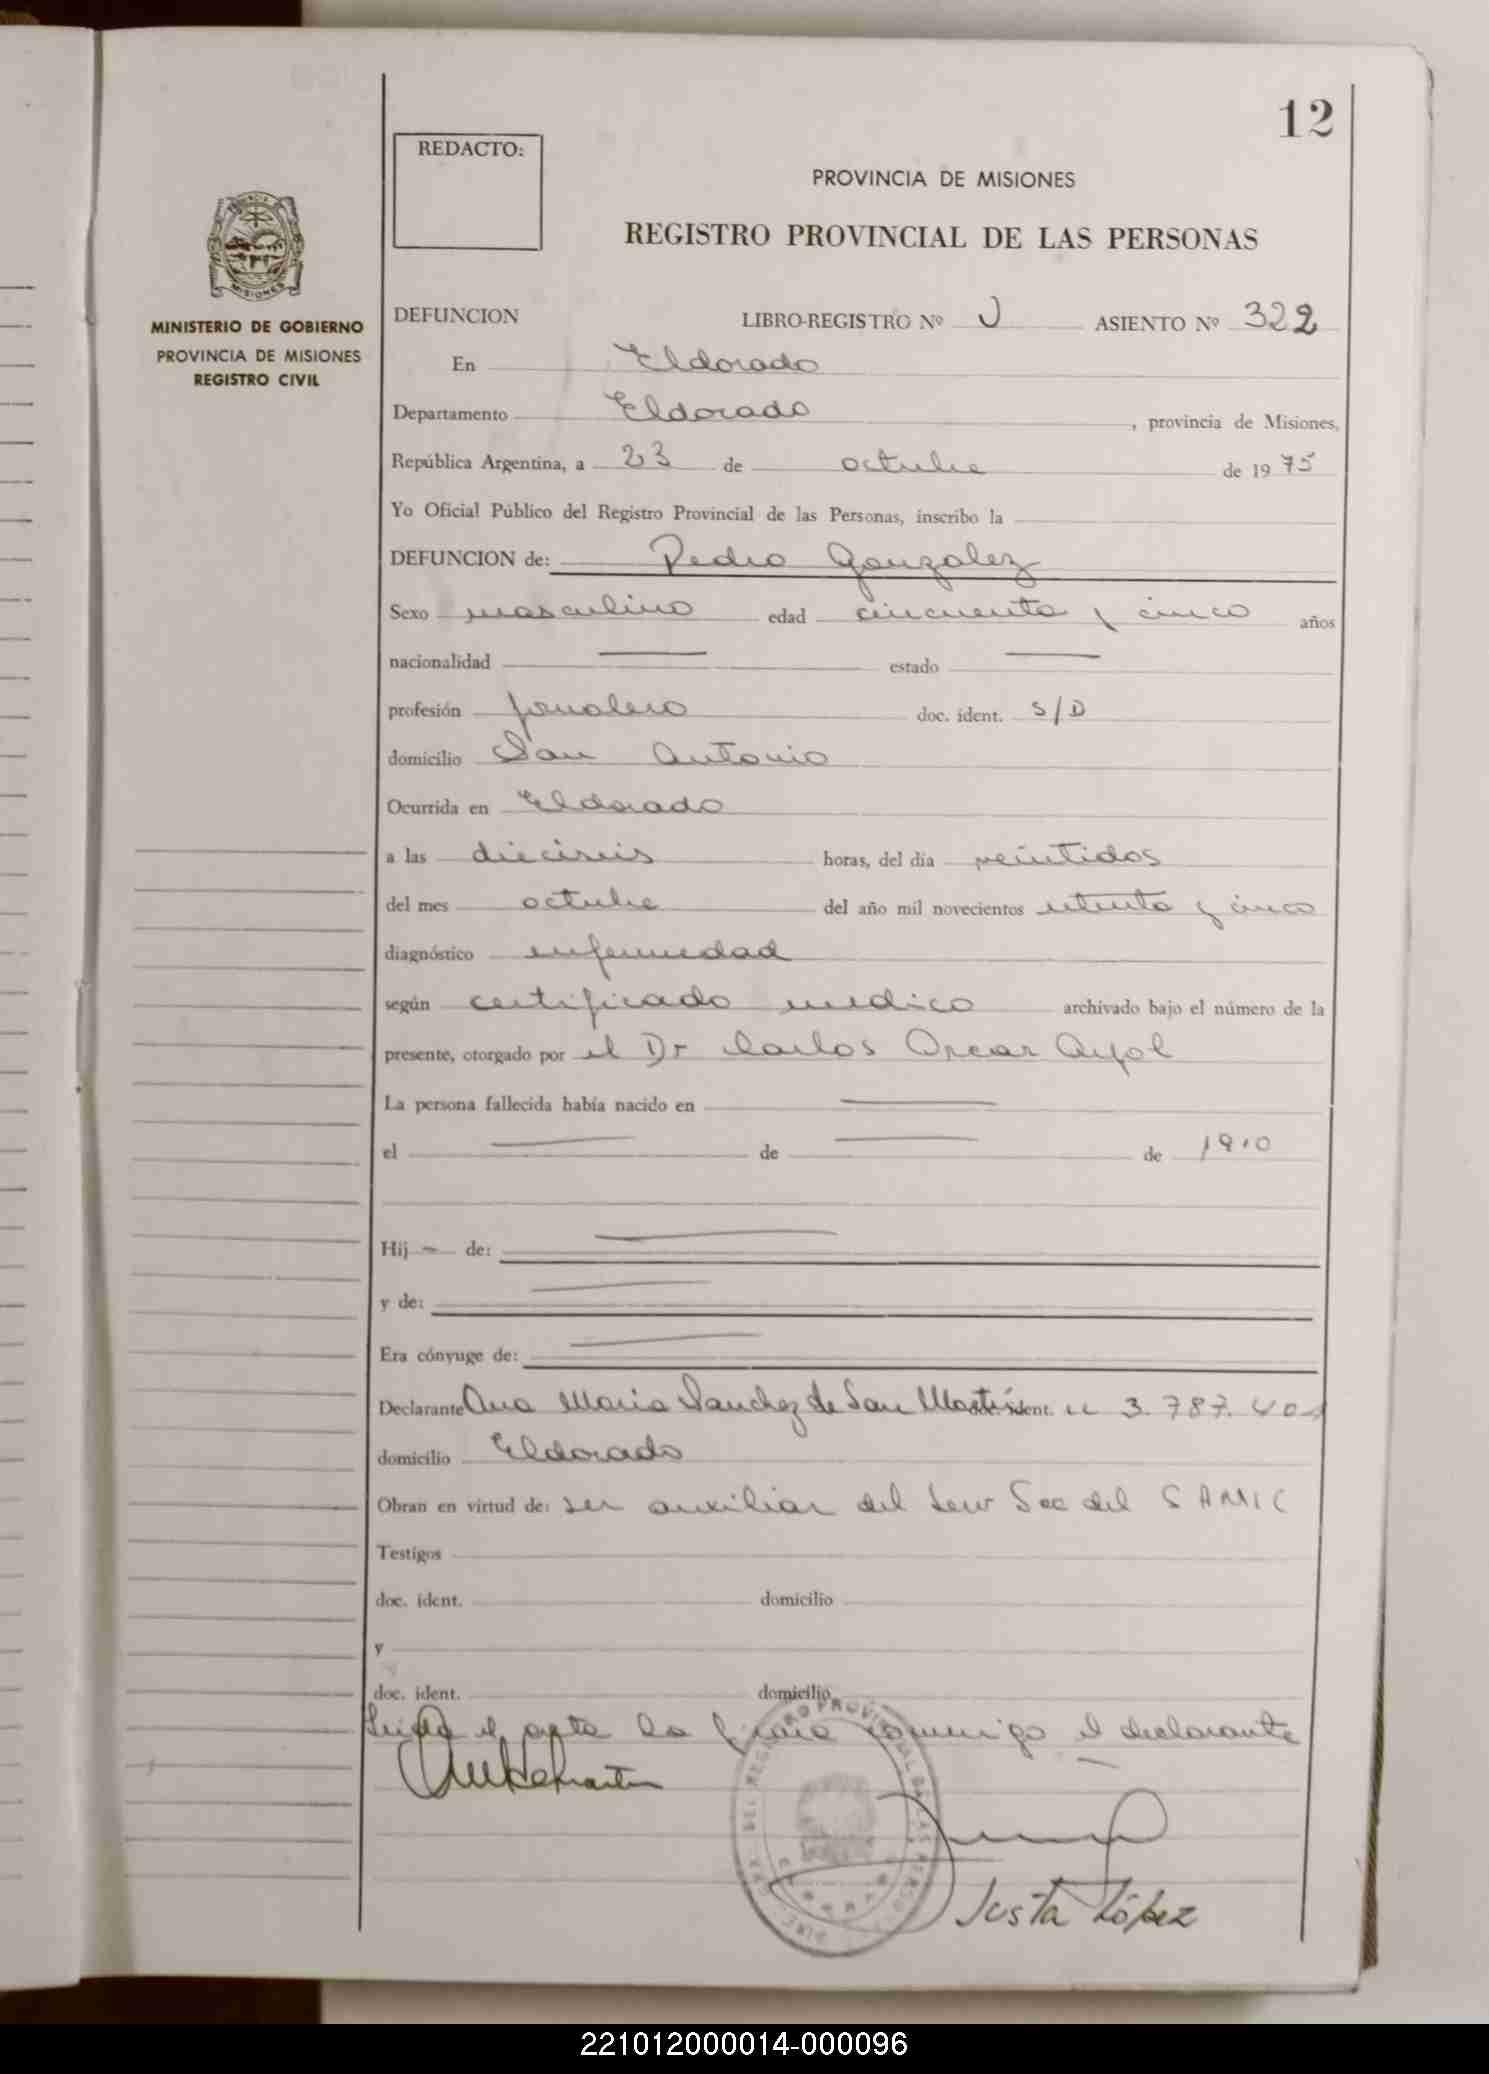 12
REDACTO:
PROVINCIA DE MISIONES
REGISTRO PROVINCIAL DE LAS PERSONAS
MISIONES
MINISTERIO DE GOBIERNO
PROVINCIA DE MISIONES
REGISTRO CIVIL
DEFUNCION LIBRO-REGISTRO Nº ASIENTO Nº 322
En Eldorado
Departamento Eldorado, provincia de Misiones,
República Argentina, a 23 de octubre de 1975
Yo Oficial Público del Registro Provincial de las Personas, inscribo la
DEFUNCION de: Pedro Gonzalez
Sexo masculino edad cincuenta y cinco años
nacionalidad — estado —
profesión jornalero doc. ident. S/D
domicilio San Antonio
Ocurrida en Eldorado
a las dieciseis horas, del día veintidos
del mes octubre del año mil novecientos setenta y cinco
diagnóstico enfermedad
según certificado medico archivado bajo el número de la
presente, otorgado por el Dr Carlos Oscar Ayol
La persona fallecida había nacido en —
el — de — de 1910
Hij — de: —
y de: —
Era cónyuge de: —
Declarante Ana Maria Sanchez de San Martin ident. 3.787.
domicilio Eldorado
Obran en virtud de: ser auxiliar del Serv Soc del SAMIC
Testigos
doc. ident. domicilio
y
doc. ident. domicilio
Leida el acta la firma conmigo el declarante
Justa López
221012000014-000096